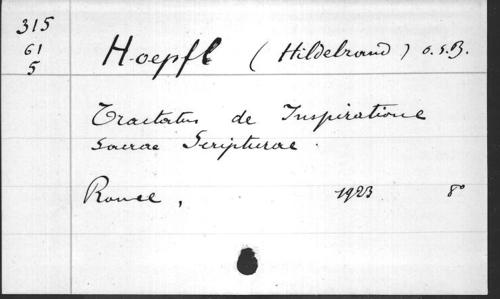 315
61
5
Hoepfl (Hildebrand) o.s.B.
Tractatus de Inspiratione
Sacrae Scripturae.
Rome, 1923 8°